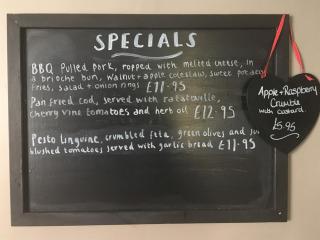 SPECIALS
BBQ Pulled pork, topped with melted cheese, in
a brioche bun, walnut + apple coleslaw, sweet potato
fries, salad + onion rings £11.95
Pan fried cod, served with ratatouille,
cherry vine tomatoes and herb oil £12.95
Pesto linguine, crumbled feta, green olives and sun
blushed tomatoes served with garlic bread £11.95
Apple + Raspberry
Crumble
with custard.
£5.95